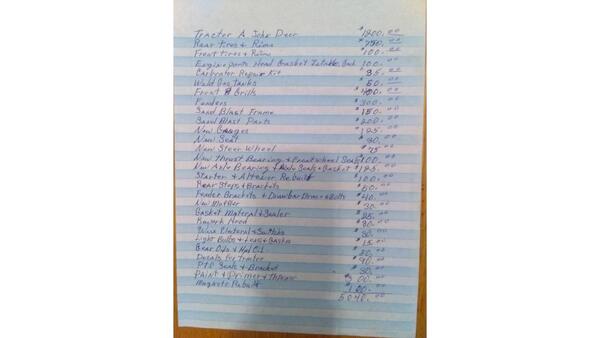 Tracter A John Deer $1800.00
Rear tires & Rims $750.00
Front tires & Rims $100.00
Engine parts Head Gasket Intake, $100.00
Carbrater Repair Kit $35.00
Weld Gas Tanks $50.00
Front & Grills $400.00
Fenders $300.00
Sand Blast Frame $150.00
Sand Blast Parts $200.00
New Gauges $125.00
New Seat $90.00
New Steer Wheel $75
New Thrust Bearing & Front wheel Seals $100.00
New Axle Bearing & Axle Seals & Gasket $125.00
Starter & Altenor Rebuilt $100.00
Rear Steps & Brackets $50.00
Fender Brackets & Drawbar & Bolts $40.00
New Muffler $30.00
Gasket Materal & Sealer $25.00
Rework Hood $80.00
Wire & Switchs $30.00
Light Bulbs & Lens & Gasket $15.00
Gear Oils & Hyd Oil
Decals for Tracter
PTO Seals & Bracket
PAINT & Primer & Thinner
Magneto Rebuilt $100.00
5040.00